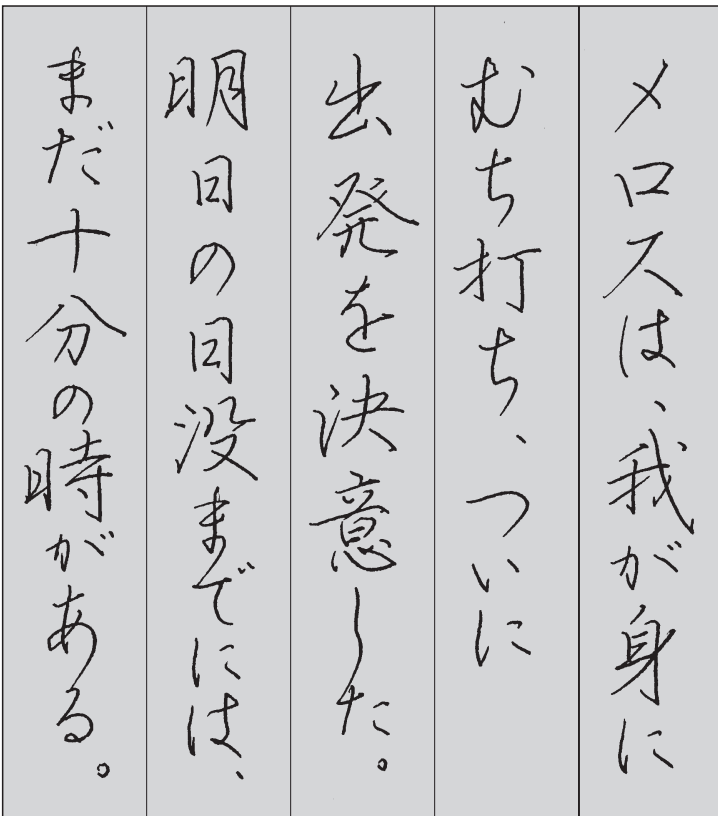 メロスは、我が身に
むち打ち、ついに
出発を決意した。
明日の日没までには、
まだ十分の時がある。